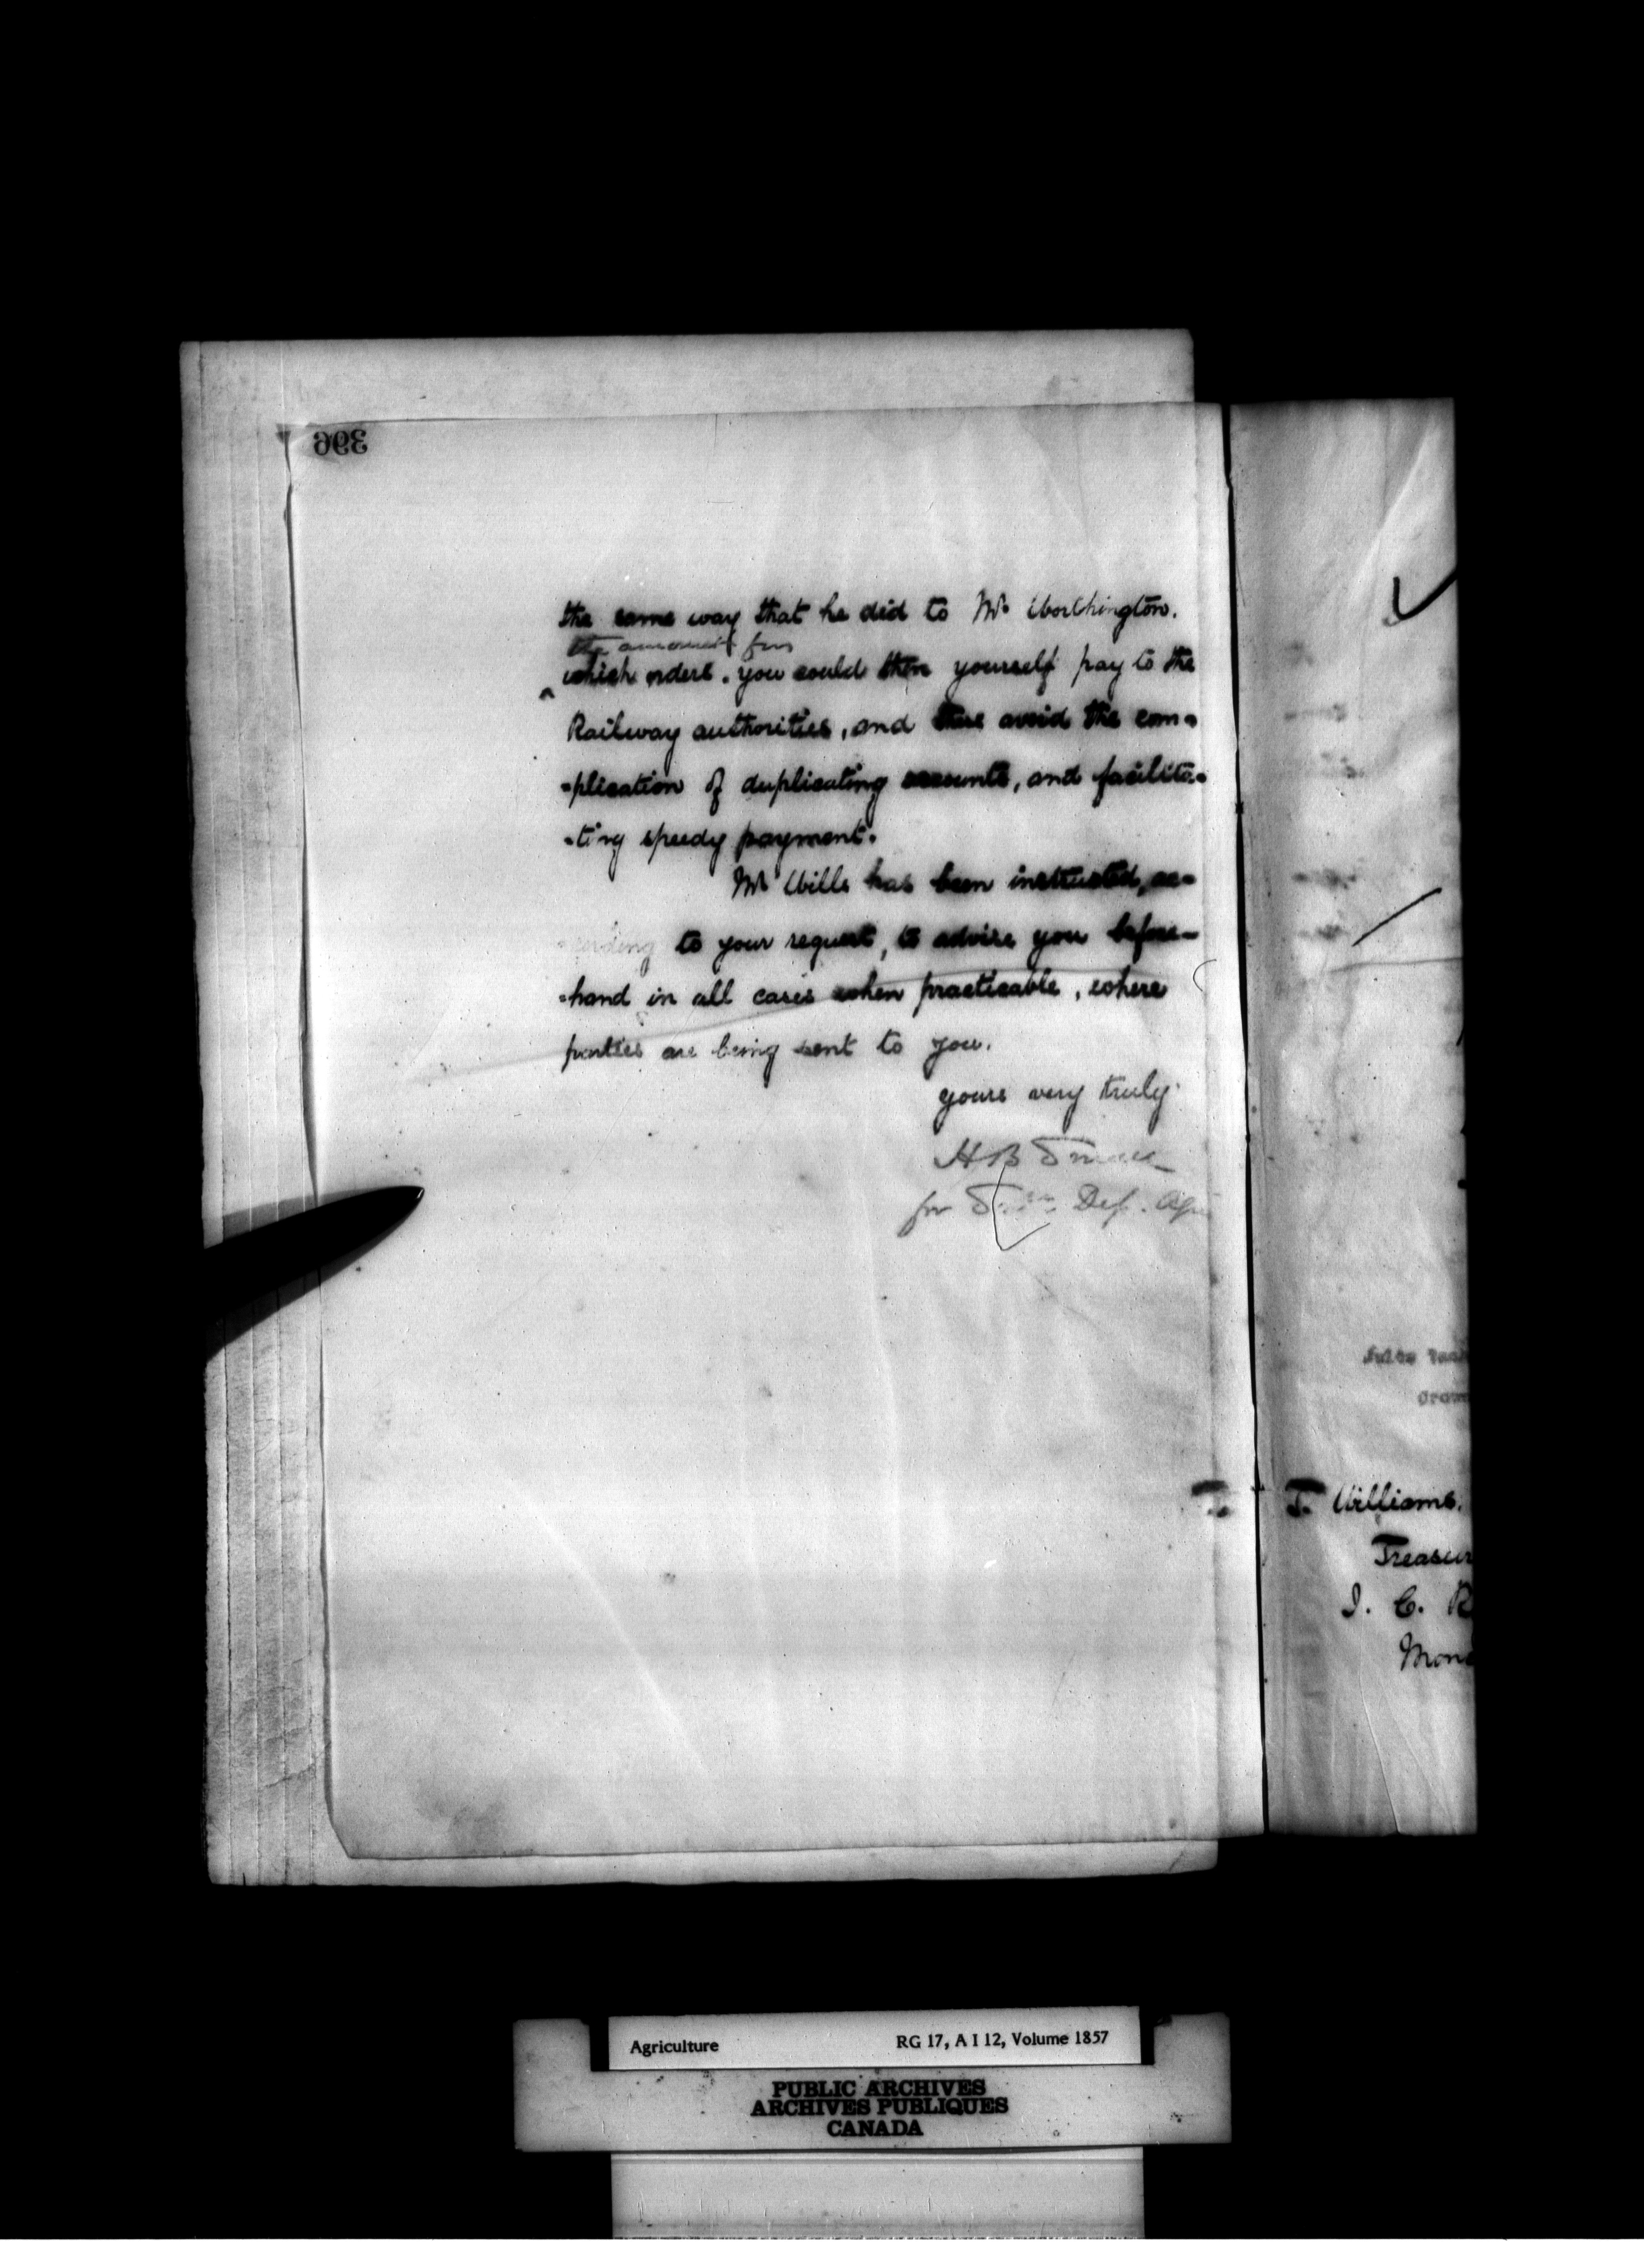 396
the same way that he did to Mr Worthington.
the amount for
which orders. you could then yourself pay to the
Railway authorities, and thus avoid the com-
-plication of duplicating accounts, and facilita-
-ting speedy payment.
Mr Wills has been instructed, ac-
-cording to your request, to advise you before-
-hand in all cases when practicable, where
parties are being sent to you.
yours very truly.
H B Small
for Dep. Agri
T. Williams.
Treasur
I. C. R
Monc
Agriculture RG 17, A I 12, Volume 1857
PUBLIC ARCHIVES
ARCHIVES PUBLIQUES
CANADA